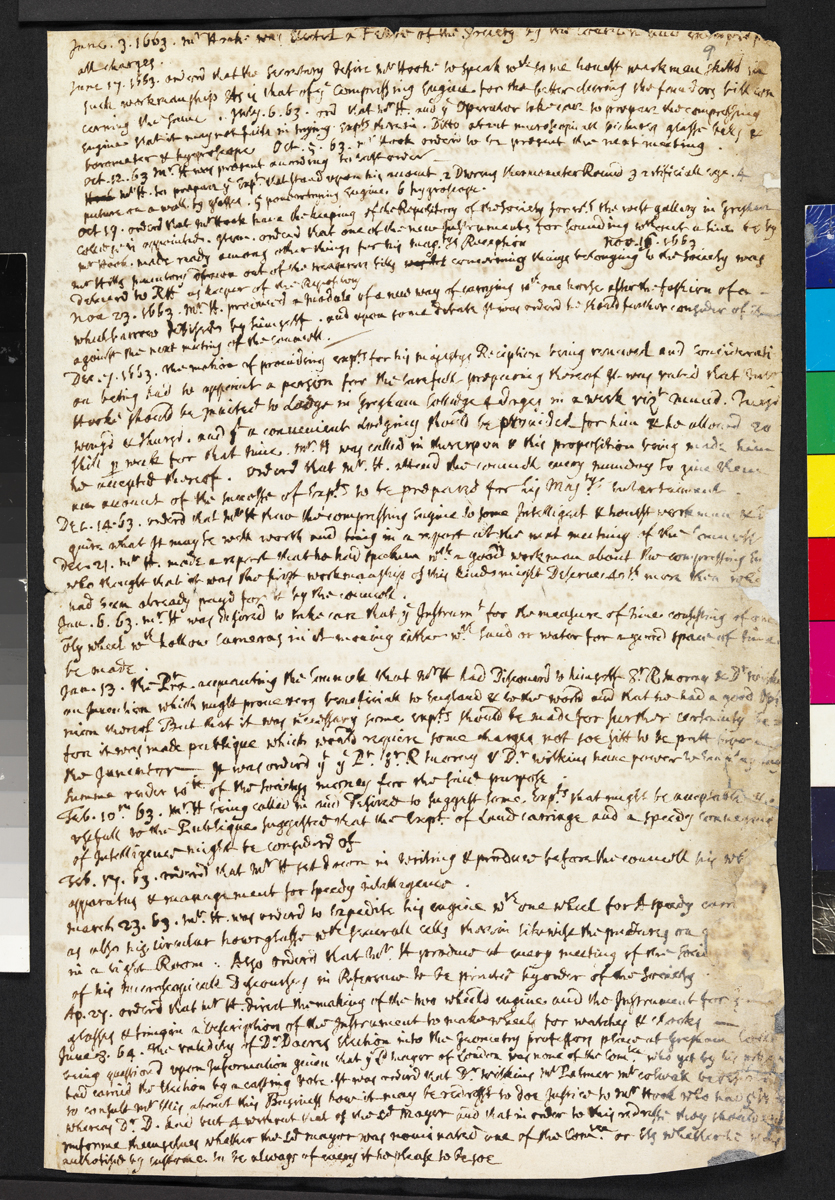 June. 3. 1663. mr Hooke was Elected a Fellow of the Society by the Councill and exempted from
all charges.
9
June 17. 1663. orderd that the Secretary desire mr Hooke to speak wth some honest workman skilld in
such workmanship as is that of ye Compressing Engine for the better clearing the founders bill con
cerning the same. July. 6. 63. ord that mr H. and ye Operator take care to prepare the compressing
Engine that it may not faile in trying Expts therein. Ditto about microscopicall pictures glasse balls &
barometer & hygroscope Oct. 5. 63. mr Hook orderd to be present the next meeting.
Oct. 12. 63 mr H was present according to last order
mr H. to prepare ye Expts that stand upon his account. 2 Thermometer Round 3 artificiall eye. 4
picture on a wall by glasses. 5 Engine. 6 hygroscope.
Oct 19. orderd that mr Hook have the keeping of the Repository of the Society for wch the west gallery in Gresham
Colledge is appointed. Item. orderd that one of the new Instruments for sounding without a line be by
mr Hook. made ready among other things for his maties Reception Nov. 1663
mr Hills Inventory drawn out of the treasurers bills concerning things belonging to the Society was
Deliverd to RH as keeper of the Repository
Nov 23. 1663. mr. H. produced a module of a new way of carrying wth one horse after the fashion of a -
which barrow Devised by himself. and upon some debate It was orderd he should further consider of them
against the next meeting of the councell.
Dec. 7. 1663. the motion of providing Expts for his majestys Reception being renewed and considerati
on being had to appoint a person for the carefull preparing thereof It was voted that mr
Hooke should be Invited to Lodge in Gresham Colledge 4 dayes in a week viz. mund. Tuesd
wensd & thursd. and yt a convenient Lodging should be provided for him & he allowed 20
shill p week for that time. mr. H was called in thereupon & this proposition being made him
he accepted thereof. orderd that mr. H. attend the councell every munday to give them
an account of the successe of Expts to be prepared for his Majties Entertainment.
Dec. 14. 63. orderd that mr H shew the compressing Engine to some Intelligent & honest workman &
quire what It may be well worth and bring in a report at the next meeting of the Councell
Dec. 21. mr H. made a report that he had spoken wth a good workman about the compressing En
who thought that it was the first workmanship of this kind might Deserve more then what
had been already payd for it by the councell.
Jan. 6. 63. mr H was desired to take care that ye Instrumt for the measure of time consisting of one
only wheel wth hollow Cameras in it moving either wth sand or water for a good space of time
be made.
Jan. 13. the Prs. acquainting the Councell that mr H had Discoverd to himselfe Sr. R. moray & Dr wilkins
an Invention which might prove very beneficiall to England & to the world and that he had a good Opi
nion thereof But that it was necessary some Expts should be made for further certainty be
fore it was made publique which would require some charges not soe fitt to be putt upon
the Inventor - It was orderd yt ye Pr. Sr. R moray & Dr wilkins have power to
summe under 10li of the Societys money for the said purpose.
Feb. 10th 63. mr H being called in and Desired to suggest some Expts that might be acceptable &
usefull to the Publique suggested that the Expt of Land carriage and a speedy conveyance
of Intelligence might be considerd of
Feb. 17. 63. orderd that mr H set down in writing & produce before the councell his wh
apparatus & management for speedy intelligence.
march 23. 63. mr. H. was orderd to Expedite his engine wth one wheel for a speedy carri
as also his circular hour glasse wth severall cells therein likewise the pictures on a
in a light Room. Also orderd that mr. H produce at every meeting of the Societ
of his microscopicall Discourses in Reference to be printed by order of the Society
Ap. 27. orderd that mr H. direct the making of the two wheeld engine and the Instrument for
glasses & bring in a Description of the Instrument to make wheels for watches & clocks -
June. 3. 64. The validity of Dr. Dacres Election into the Geometry professors place at Gresham Colle
being questiond upon Information given that ye Ld mayor of London was none of the Comtee who yet by his vote
had carried the Election by a casting vote. It was orderd that Dr. wilkins mr Palmer mr colwall be
to consult mr Ellis about this Business how it may be redresst to doe Justice to mr Hook who had
whereas Dr. D. had but 4 without that of the Ld Mayor and that in order to this redresse they should
informe themselves whether the Ld mayor was nominated one of the Comtee or by whether he
authorised by custome to be always of every if he please to be soe